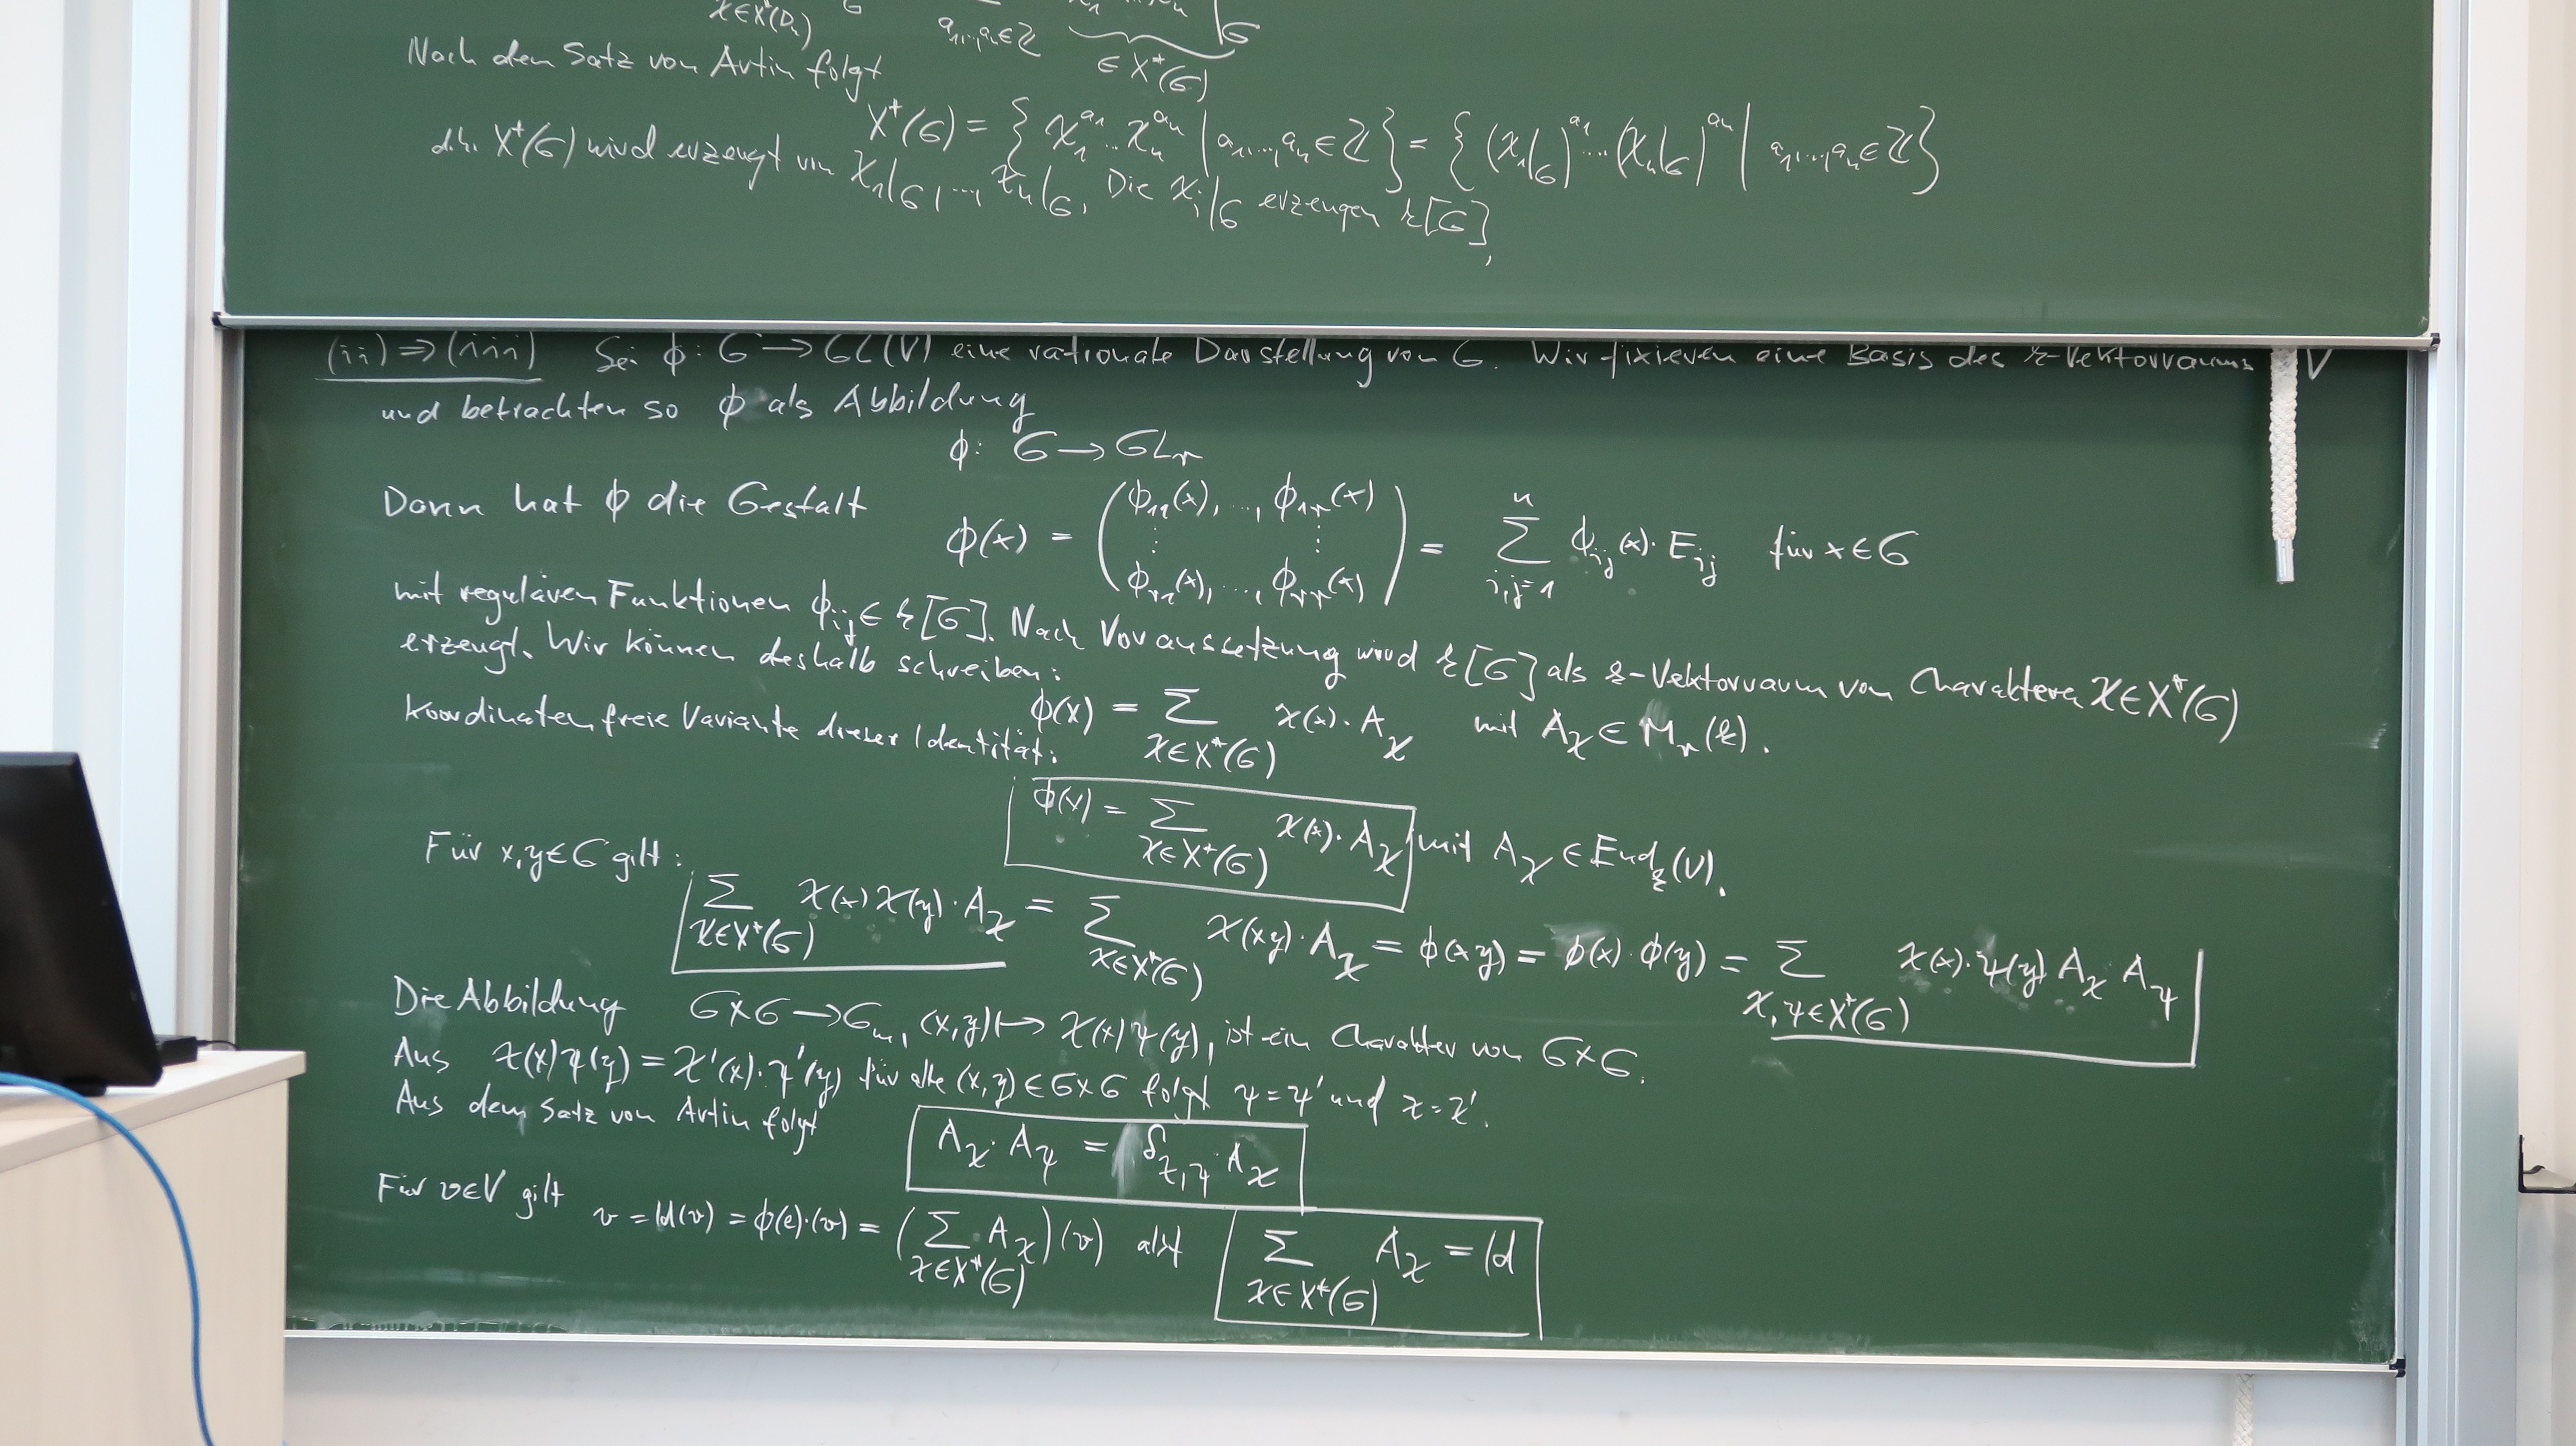 χ∈X*(Dₙ) G a₁,...,aₙ∈ℤ |G
Nach dem Satz von Artin folgt ∈ X*(G)
X*(G) = { χ₁^a₁ ... χₙ^aₙ | a₁,...,aₙ ∈ ℤ } = { (χ₁|G)^a₁ ... (χₙ|G)^aₙ | a₁,...,aₙ ∈ ℤ }
d.h. X*(G) wird erzeugt von χ₁|G, ..., χₙ|G. Die χᵢ|G erzeugen k[G],
(ii) ⇒ (iii) Sei ϕ: G → GL(V) eine rationale Darstellung von G. Wir fixieren eine Basis des k-Vektorraums V
und betrachten so ϕ als Abbildung
ϕ: G → GLᵣ
Dann hat ϕ die Gestalt
ϕ(x) = ( ϕ₁₁(x), ..., ϕ₁ᵣ(x) ⋮ ⋮ ϕᵣ₁(x), ..., ϕᵣᵣ(x) ) = Σ_{i,j=1}^n ϕᵢⱼ(x)·Eᵢⱼ für x∈G
mit regulären Funktionen ϕᵢⱼ ∈ k[G]. Nach Voraussetzung wird k[G] als k-Vektorraum von Charakteren χ∈X*(G)
erzeugt. Wir können deshalb schreiben:
ϕ(x) = Σ_{χ∈X*(G)} χ(x)·A_χ mit A_χ ∈ Mᵣ(k).
Koordinatenfreie Variante dieser Identität:
ϕ(x) = Σ_{χ∈X*(G)} χ(x)·A_χ mit A_χ ∈ End_k(V).
Für x,y∈G gilt:
Σ_{χ∈X*(G)} χ(x)χ(y)·A_χ = Σ_{χ∈X*(G)} χ(xy)·A_χ = ϕ(xy) = ϕ(x)·ϕ(y) = Σ_{χ,ψ∈X*(G)} χ(x)·ψ(y) A_χ·A_ψ
Die Abbildung G×G → G_m, (x,y) ↦ χ(x)ψ(y), ist ein Charakter von G×G.
Aus χ(x)ψ(y) = χ'(x)·ψ'(y) für alle (x,y)∈G×G folgt ψ=ψ' und χ=χ'.
Aus dem Satz von Artin folgt
A_χ·A_ψ = δ_{χ,ψ}·A_χ
Für v∈V gilt
v = Id(v) = ϕ(e)·(v) = ( Σ_{χ∈X*(G)} A_χ )(v) also Σ_{χ∈X*(G)} A_χ = Id